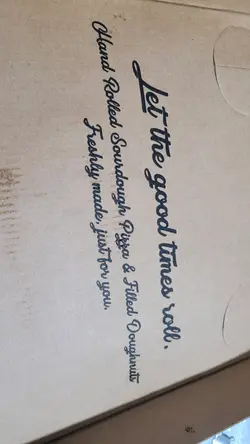 Let the good times roll.
Hand Rolled Sourdough Pizza & Filled Doughnuts
Freshly made, just for you.